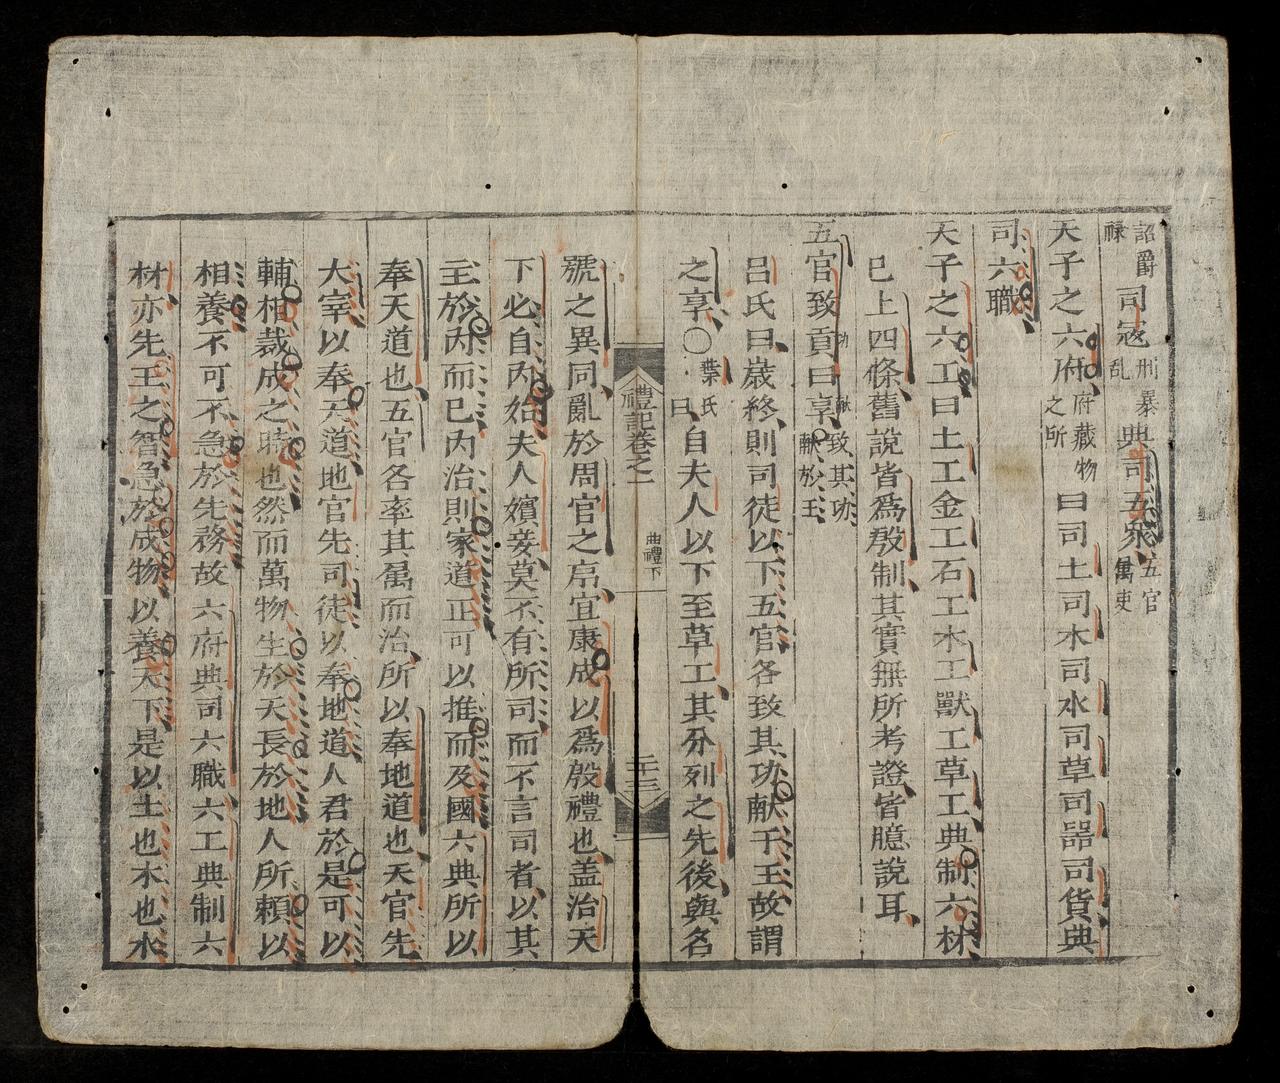 詔爵祿司寇刑暴乱典司五眾五官属吏
天子之六府府藏物之所曰司土司木司水司草司噐司貨典
司六職
天子之六工曰土工金工石工木工獸工草工典制六材
巳上四條舊說皆爲殷制其實無所考證皆臆說耳
五官致貢曰享功献致其功献於王
呂氏曰歲終則司徒以下五官各致其功献于王故謂
之享○葉氏曰自夫人以下至草工其分列之先後與名
禮記卷之一 曲禮下 二十三
號之異同亂於周官之序宜康成以爲殷禮也盖治天
下必自內始夫人嬪妾莫不有所司而不言司者以其
主於內而已內治則家道正可以推而及國六典所以
奉天道也五官各率其属而治所以奉地道也天官先
大宰以奉天道地官先司徒以奉地道人君於是可以
輔相裁成之時也然而萬物生於天長於地人所頼以
相養不可不急於先務故六府典司六職六工典制六
材亦先王之智急於成物以養天下是以土也木也水